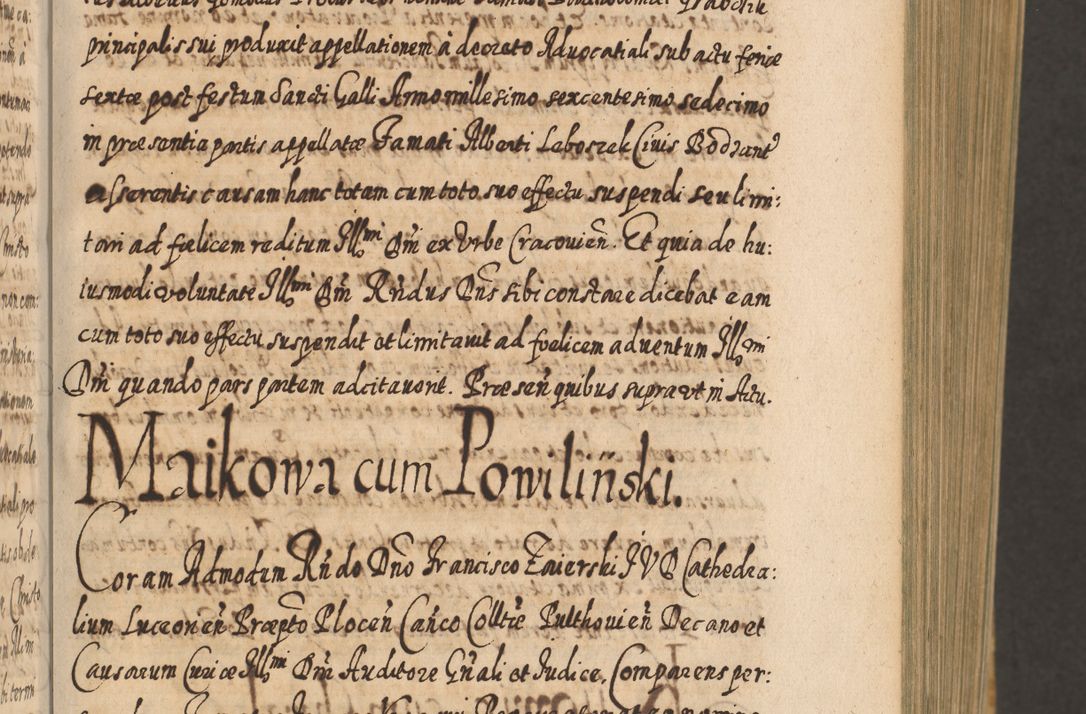 principalis sui produxit appellationem à decreto Advocatiali sub actu feriæ
sextæ post festum Sancti Galli Anno millesimo sexcentesimo sedecimo
in præsentia partis appellatæ Famati Alberti Laboszek Civis Bodzant
asserentis causam hanc totam cum toto suo effectu suspendi seu limi:
tari ad fœlicem reditum Illmi Dni ex Urbe Cracovień. Et quia de hu:
iusmodi voluntate Illmi Dni Rńdus Dńs sibi constare dicebat eam
cum toto suo effectu suspendit et limitavit ad fœlicem adventum Illmi
Dni quando pars partem adcitaverit. Præseń quibus supra ut in Actu.
Maikowa cum Powiliński.
Coram Admodum Rńdo Dńo Francisco Zaierski JVD Cathedra:
lium Luceoneń Præpto Płoceń Cańco Colltæ Pulthovień Decano et
Causarum Curiæ Illmi Dni Auditore Gńali et Judice, Comparens per: